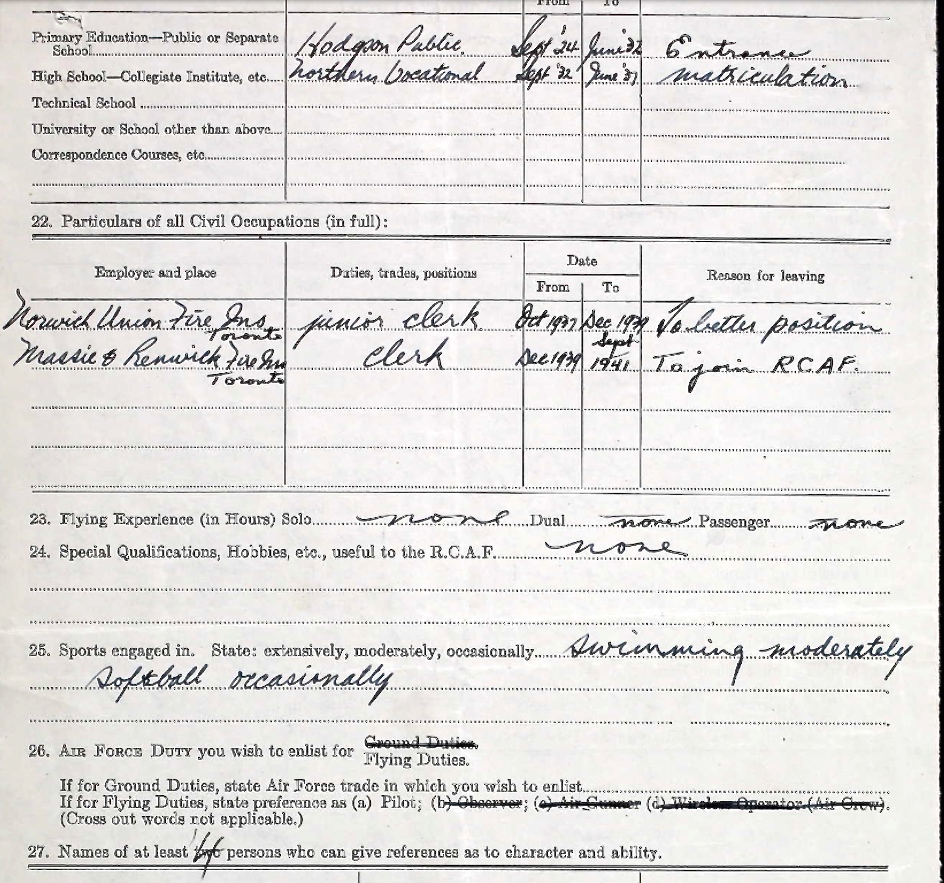 From To
Primary Education—Public or Separate School Hodgson Public. Sept '24 June '32 Entrance
High School—Collegiate Institute, etc. Northern Vocational Sept '32 June '37 matriculation
Technical School
University or School other than above
Correspondence Courses, etc.
22. Particulars of all Civil Occupations (in full):
Employer and place Duties, trades, positions Date Reason for leaving
From To
Norwich Union Fire Ins Toronto junior clerk Oct 1937 Dec 1939 To better position
Massie & Renwick Fire Ins Toronto clerk Dec 1939 Sept 1941 To join R.C.A.F.
23. Flying Experience (in Hours) Solo none Dual none Passenger none
24. Special Qualifications, Hobbies, etc., useful to the R.C.A.F. none
25. Sports engaged in. State: extensively, moderately, occasionally swimming moderately
softball occasionally
26. AIR FORCE DUTY you wish to enlist for Ground Duties.
Flying Duties.
If for Ground Duties, state Air Force trade in which you wish to enlist
If for Flying Duties, state preference as (a) Pilot; (b) Observer; (c) Air Gunner (d) Wireless Operator (Air Crew).
(Cross out words not applicable.)
27. Names of at least persons who can give references as to character and ability.